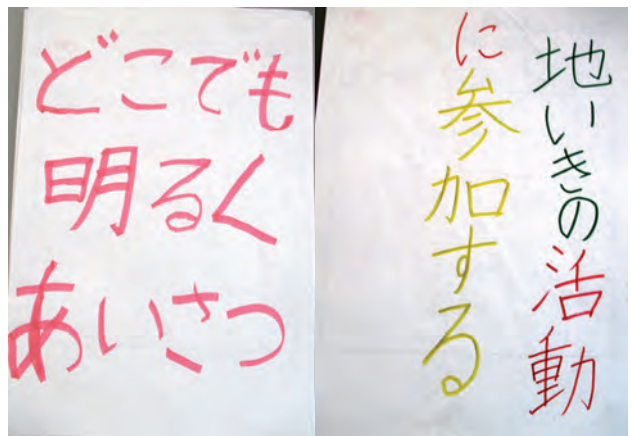 どこでも
明るく
あいさつ
地いきの活動
に参加する